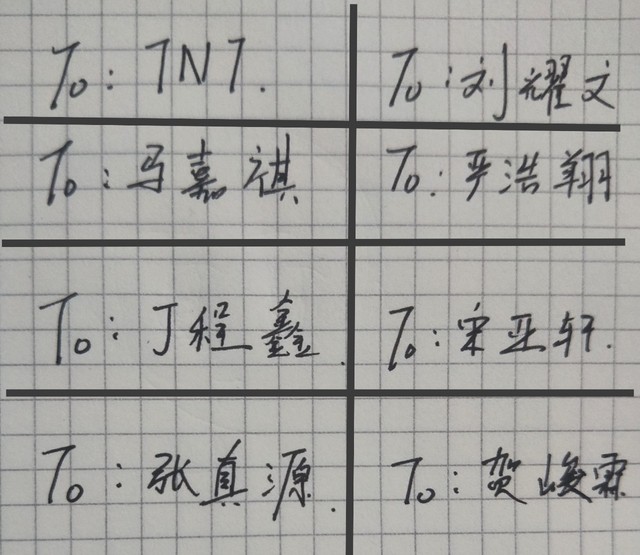 To: TNT.
To: 刘耀文
To: 马嘉祺
To: 严浩翔
To: 丁程鑫.
To: 宋亚轩.
To: 张真源.
To: 贺峻霖